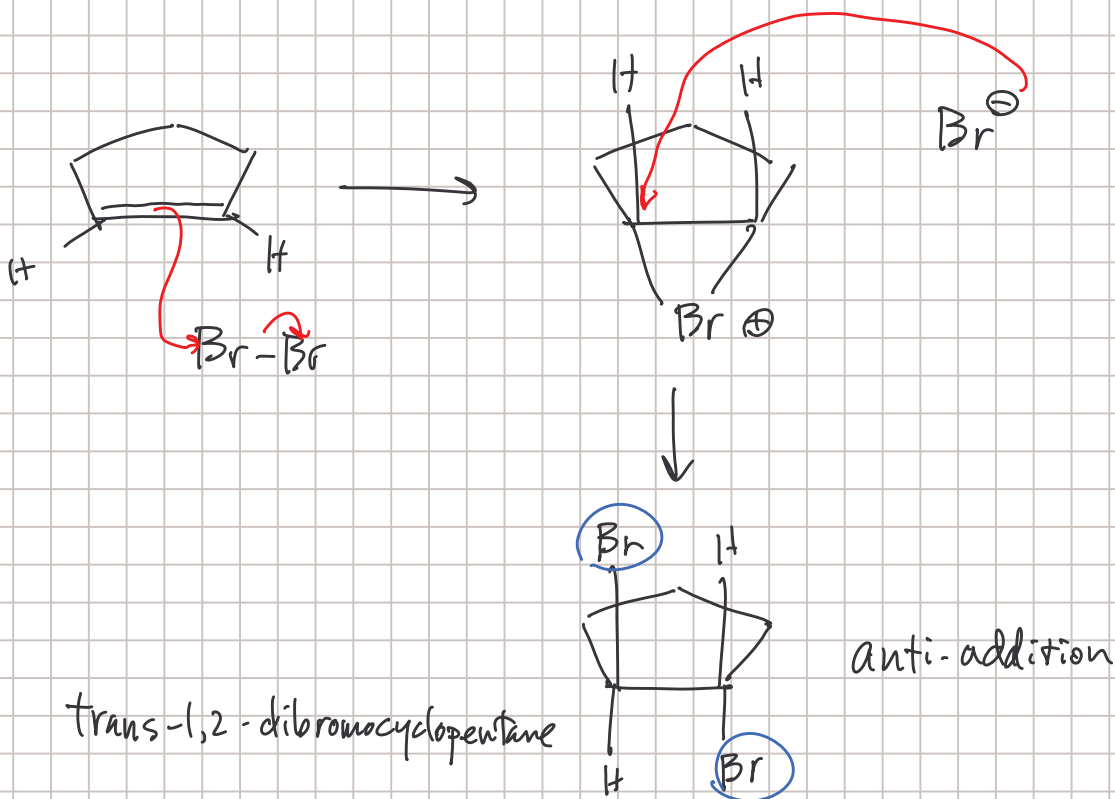 H H
Br ⊖
H
H
Br-Br
Br ⊕
Br H
anti-addition
trans-1,2-dibromocyclopentane
H Br